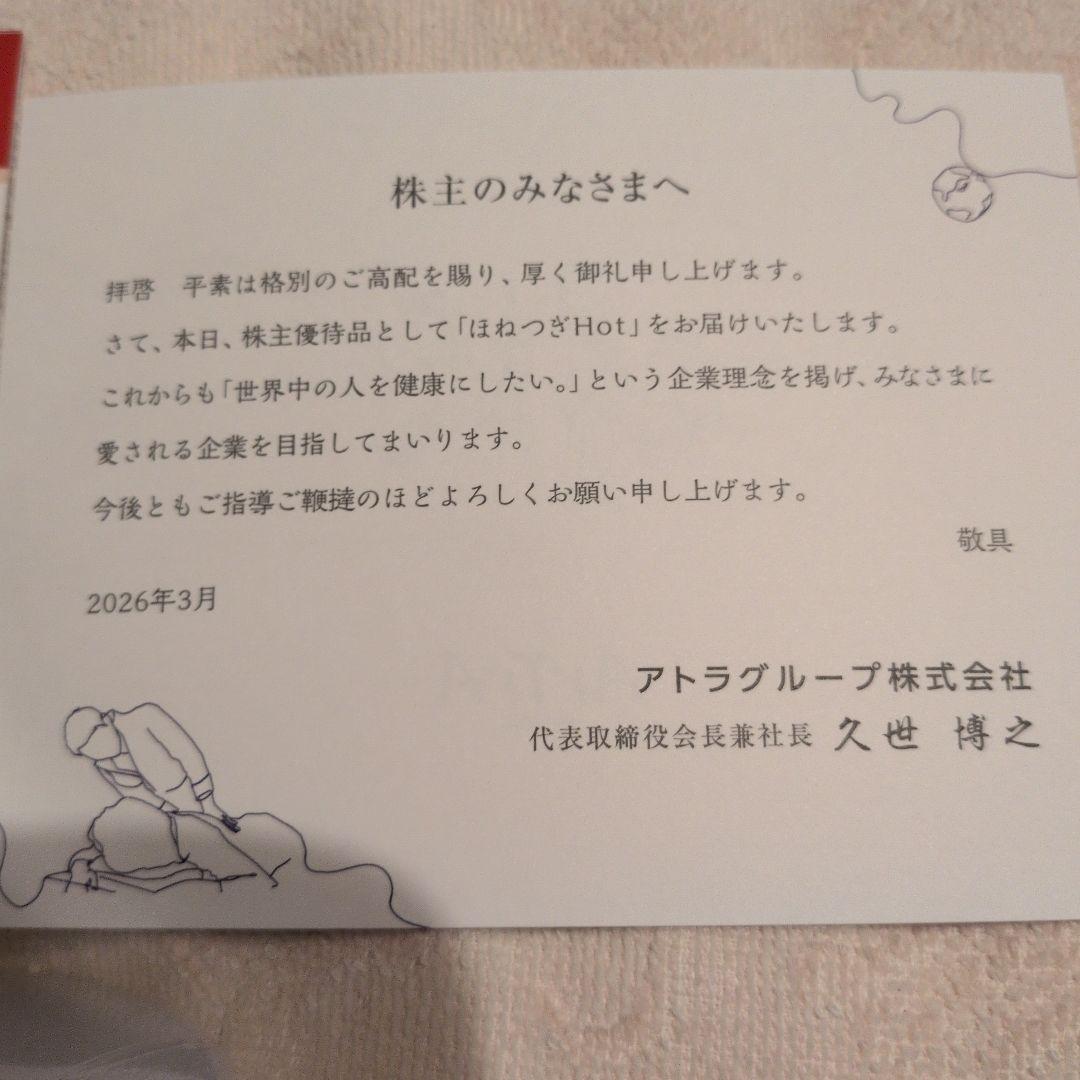 株主のみなさまへ
拝啓　平素は格別のご高配を賜り、厚く御礼申し上げます。
さて、本日、株主優待品として「ほねつぎHot」をお届けいたします。
これからも「世界中の人を健康にしたい。」という企業理念を掲げ、みなさまに
愛される企業を目指してまいります。
今後ともご指導ご鞭撻のほどよろしくお願い申し上げます。
敬具
2026年3月
アトラグループ株式会社
代表取締役会長兼社長　久世　博之